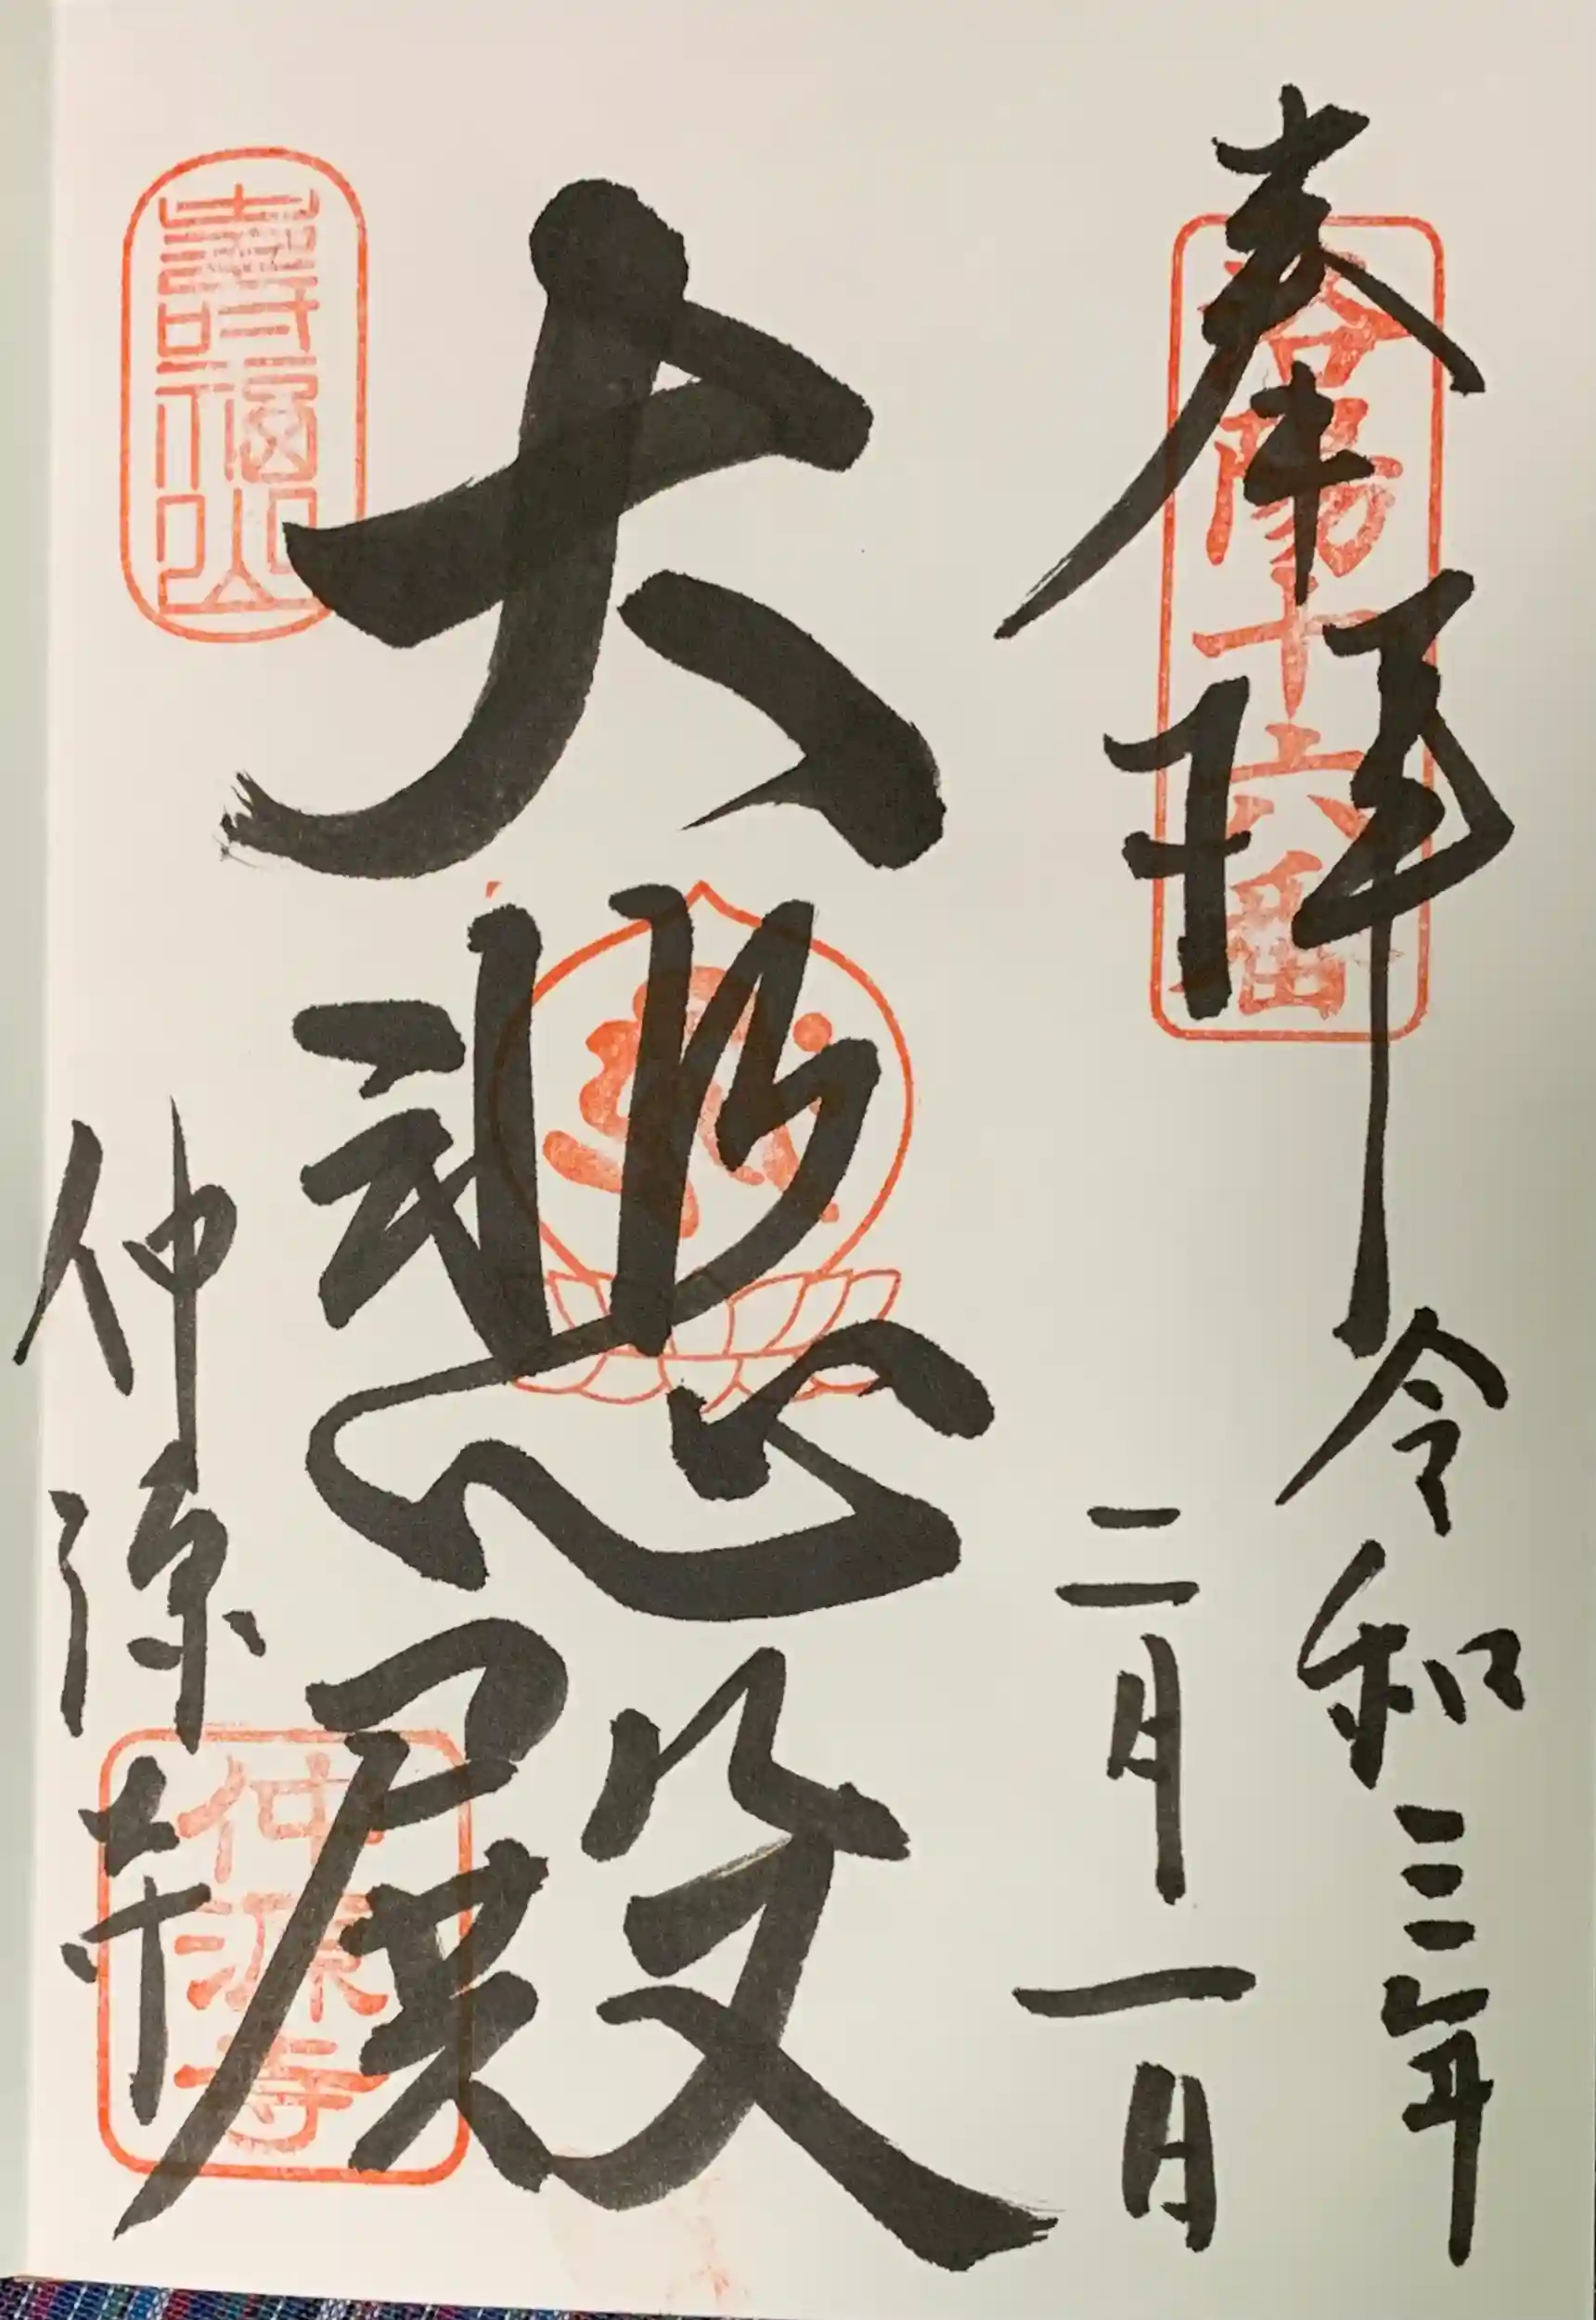 奉拝
洛陽十六番
令和三年
二月一日
大悲殿
壽福山
仲源寺
仲源寺